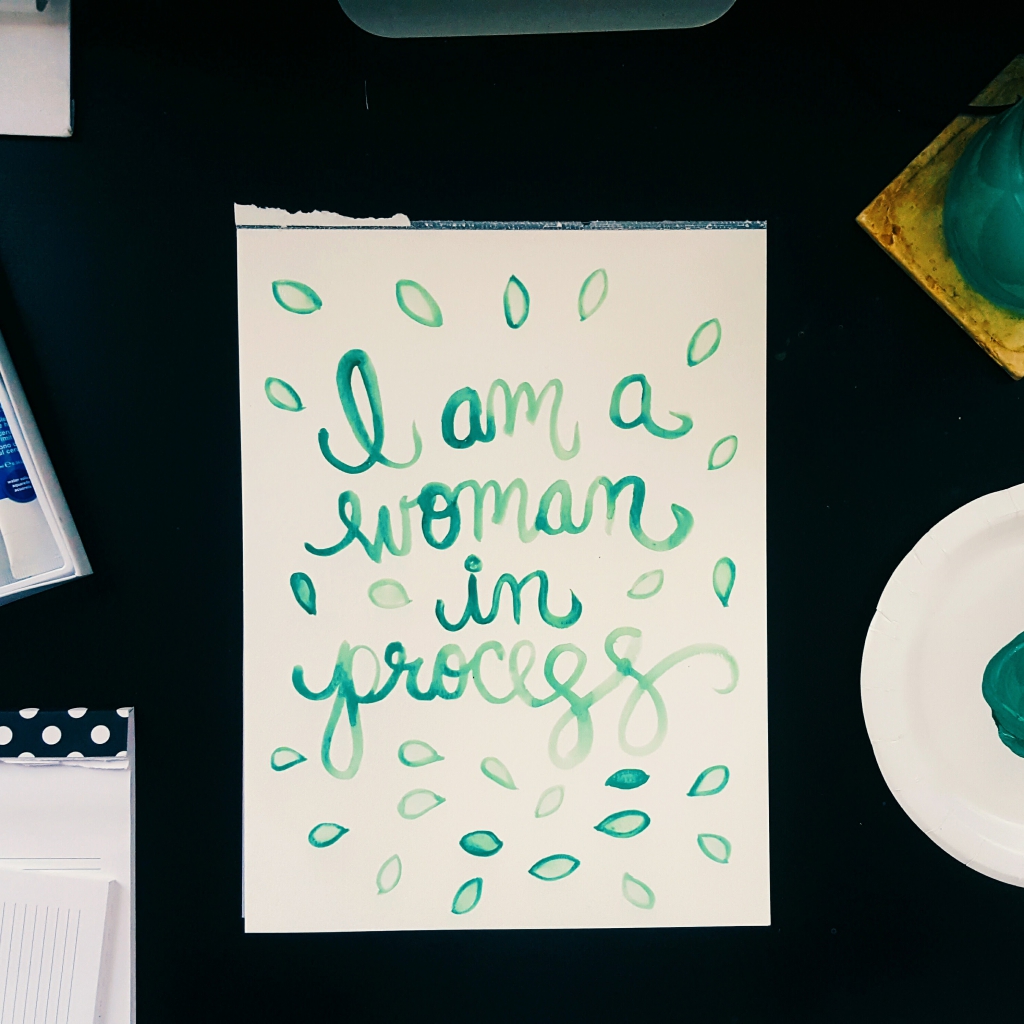 I am a
woman
in
process